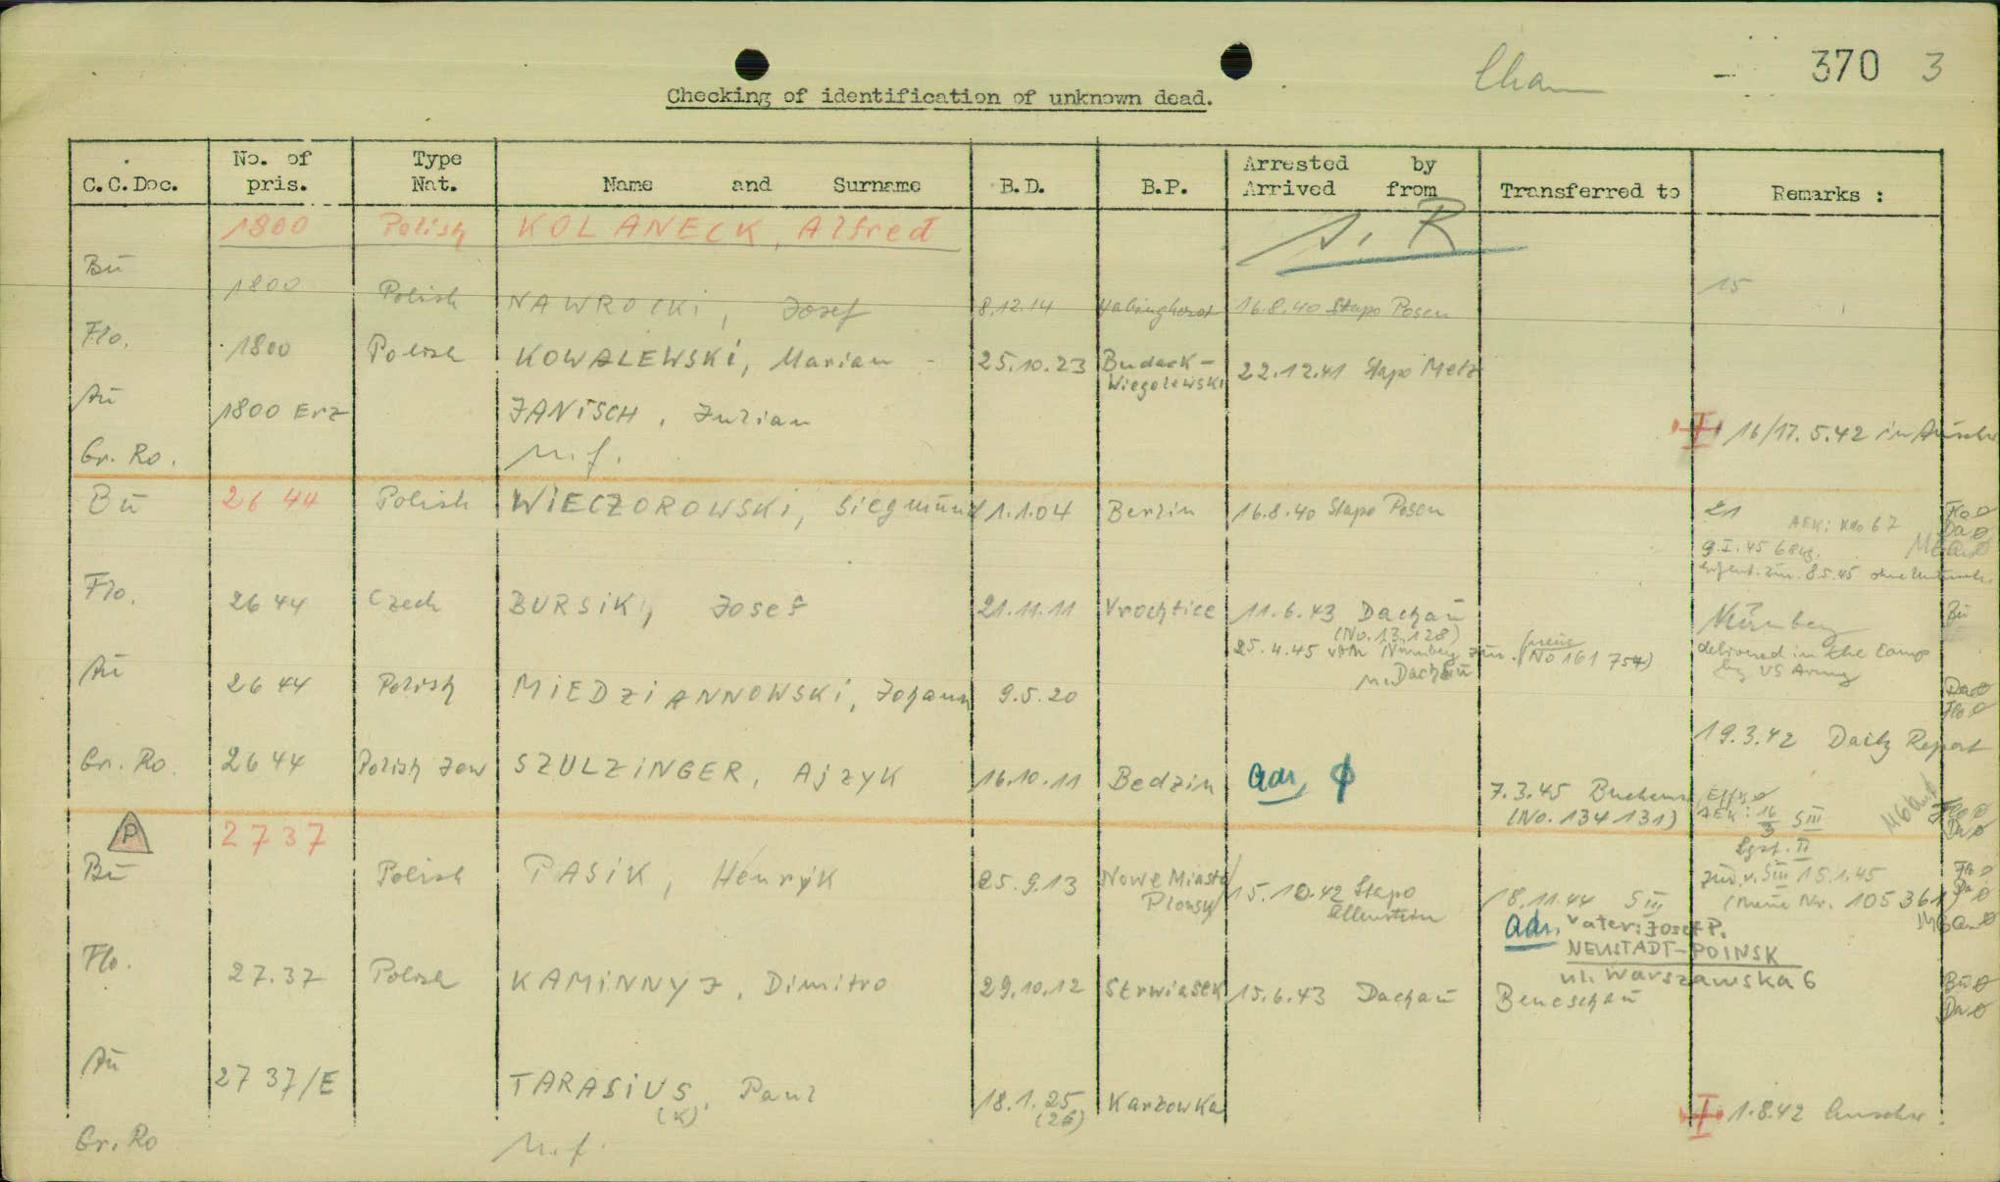 Cham - 370 3
Checking of identification of unknown dead.
C.C.Doc. No. of pris. Type Nat. Name and Surname B.D. B.P. Arrested by Arrived from Transferred to Remarks :
1800 Polish KOLANECK, Alfred
S. R
Bü 1800 Polish NAWROCKI, Josef 8.12.14 16.8.40 Stapo Posen 15
Flo. 1800 Polish KOWALEWSKI, Marian - 25.10.23 Budack-Wiegolewski 22.12.41 Stapo Metz
Aü 1800 Erz JANISCH, Julian 16/17.5.42 in
Gr. Ro. n.f.
Bü 2644 Polish WIECZOROWSKI, Siegmund 1.1.04 Berlin 16.8.40 Stapo Posen 21
9.I.45 68kg.
Flo. 2644 Czech BURSIK, Josef 21.11.11 Vrochtice 11.6.43 Dachau Nürnberg Bü
(No. 13.128)
25.4.45 vom Nürnberg zur. (neue No 161 754) delivered in the camp
n. Dachau by US Army
Aü 2644 Polish MIEDZIANNOWSKI, Johann 9.5.20
19.3.42 Daily Report
Gr. Ro. 2644 Polish Jew SZULZINGER, Ajzyk 16.10.11 Bedzin adr,
7.3.45
(No. 134131) AEK: 16/3 SIII
P 2737
Bü Polish PASIK, Henryk 25.9.13 Nowe Miasto Plonsk 15.10.42 Stapo Allenstein 18.11.44 SIII zur. v. SIII 15.1.45
(neue Nr. 105361)
adr. Vater: Josef P.
NEUSTADT-POINSK
ul. Warszawska 6
Flo. 27.37 Polish KAMINNYJ, Dimitro 29.10.12 Strwiasek 15.6.43 Dachau Beneschau
Aü 2737/E TARASIUS, Paul 18.1.25 Karzowka
(K) (26)
1.8.42 Auschw
Gr. Ro n.f.